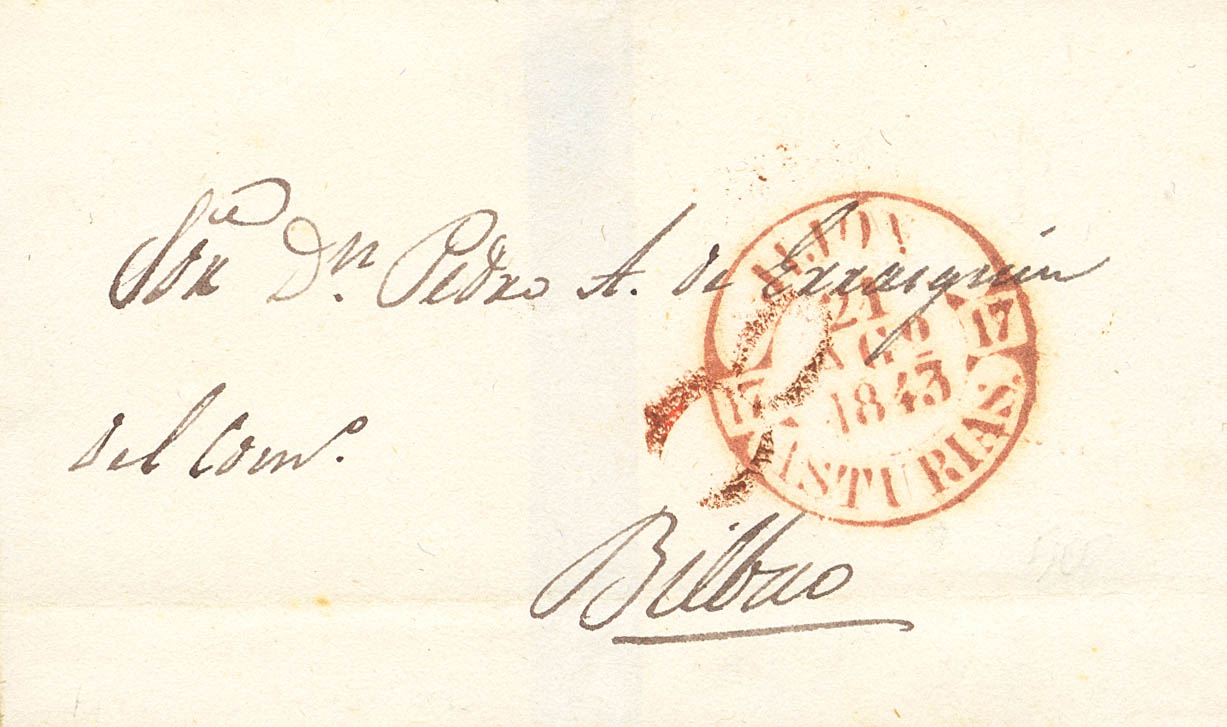 Sor. Dn. Pedro A. de Errazquin
del Com.o
Bilbao
GIJON
21
AGO
1843
17
17
ASTURIAS.